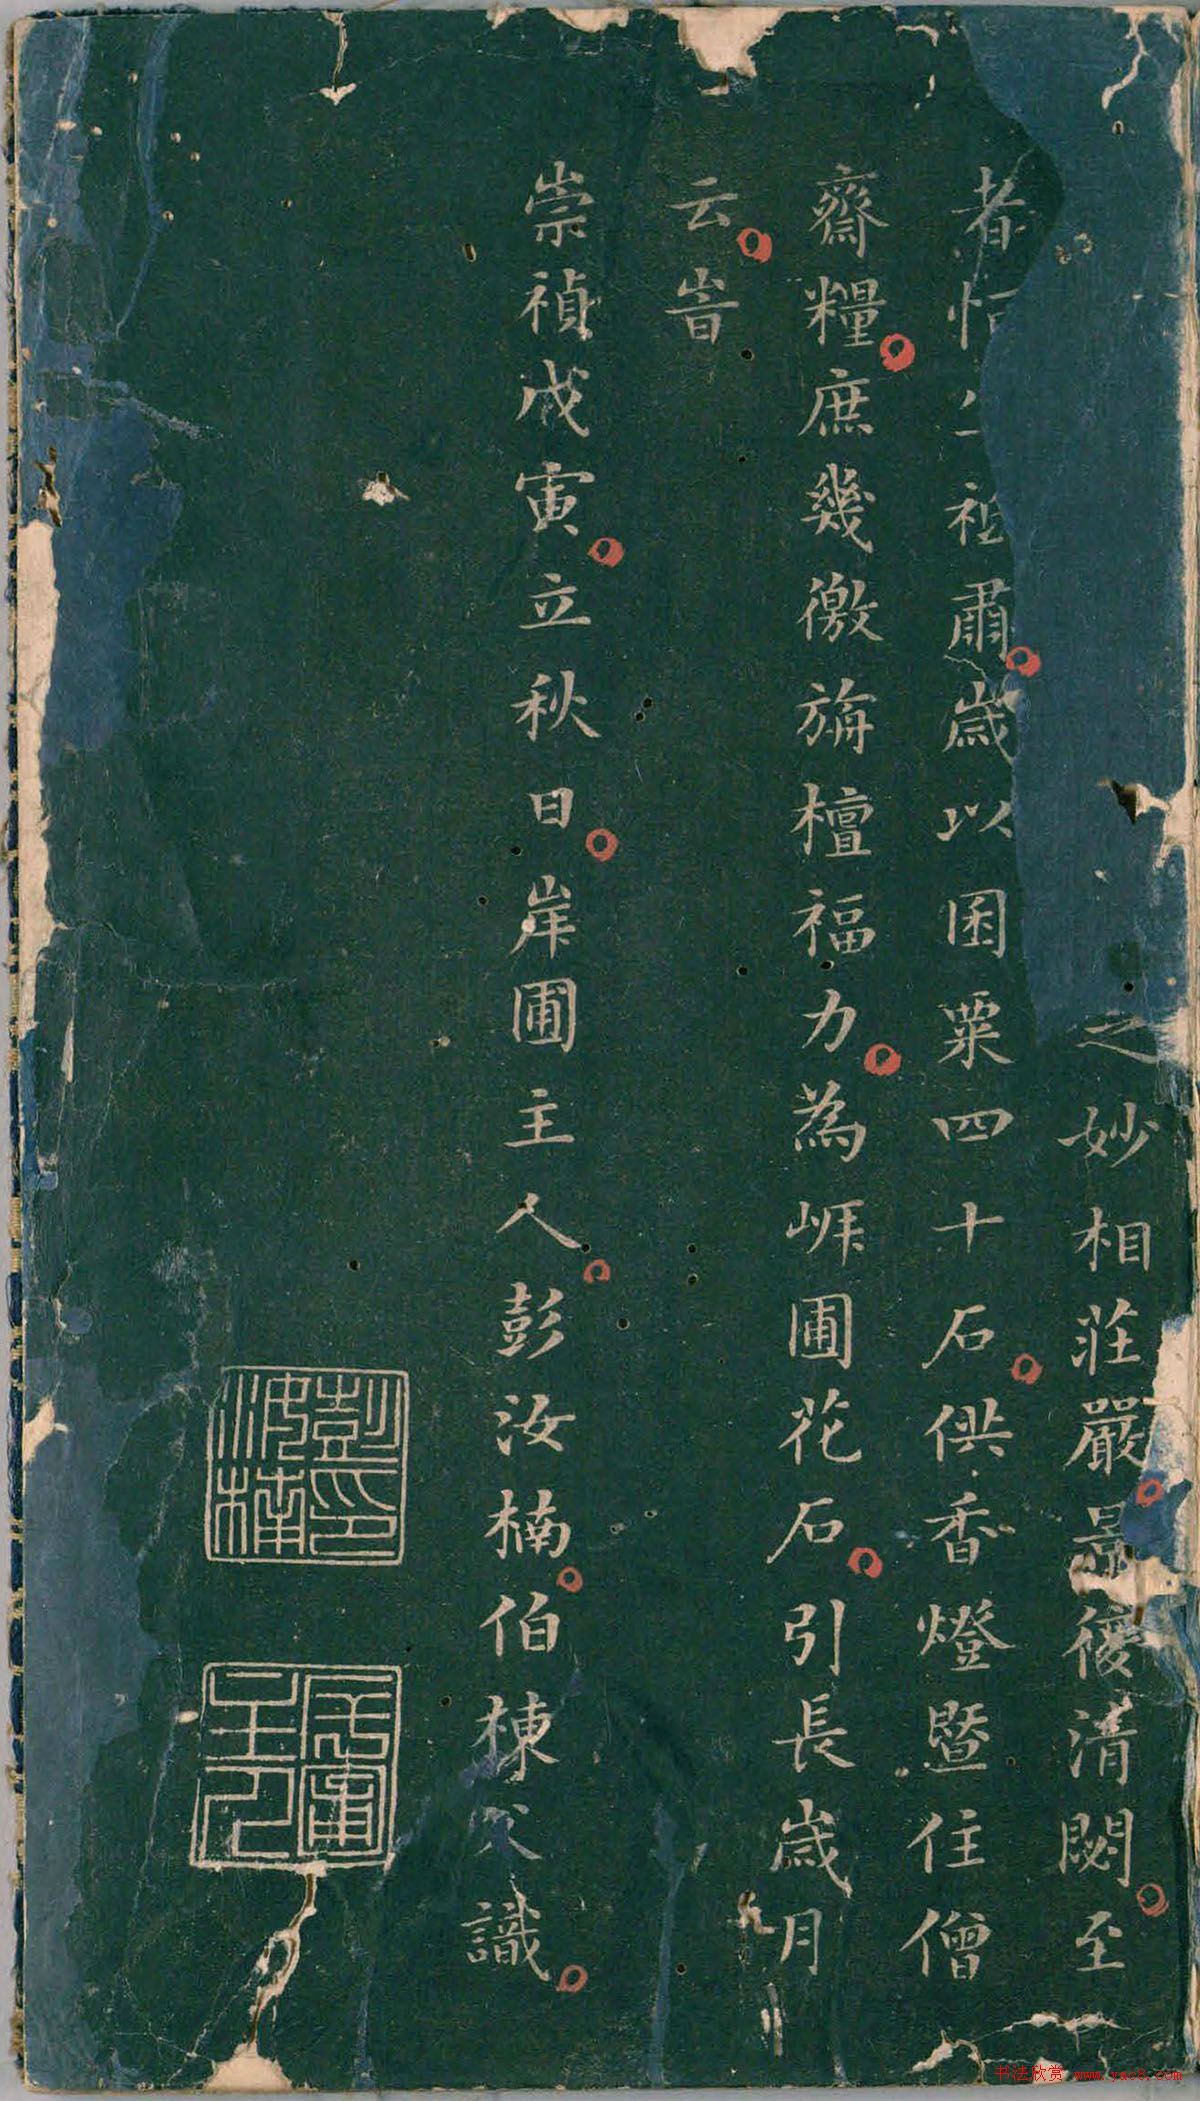 之妙相莊嚴景復清閟至
者恒祖肅歲以囷粟四十石供香燈暨住僧
齋糧庶幾徼旃檀福力為㟁圃花石引長歲月
云旹
崇禎戊寅立秋日岸圃主人彭汝楠伯棟父識
彭汝楠印
书法欣赏 www.yac8.com